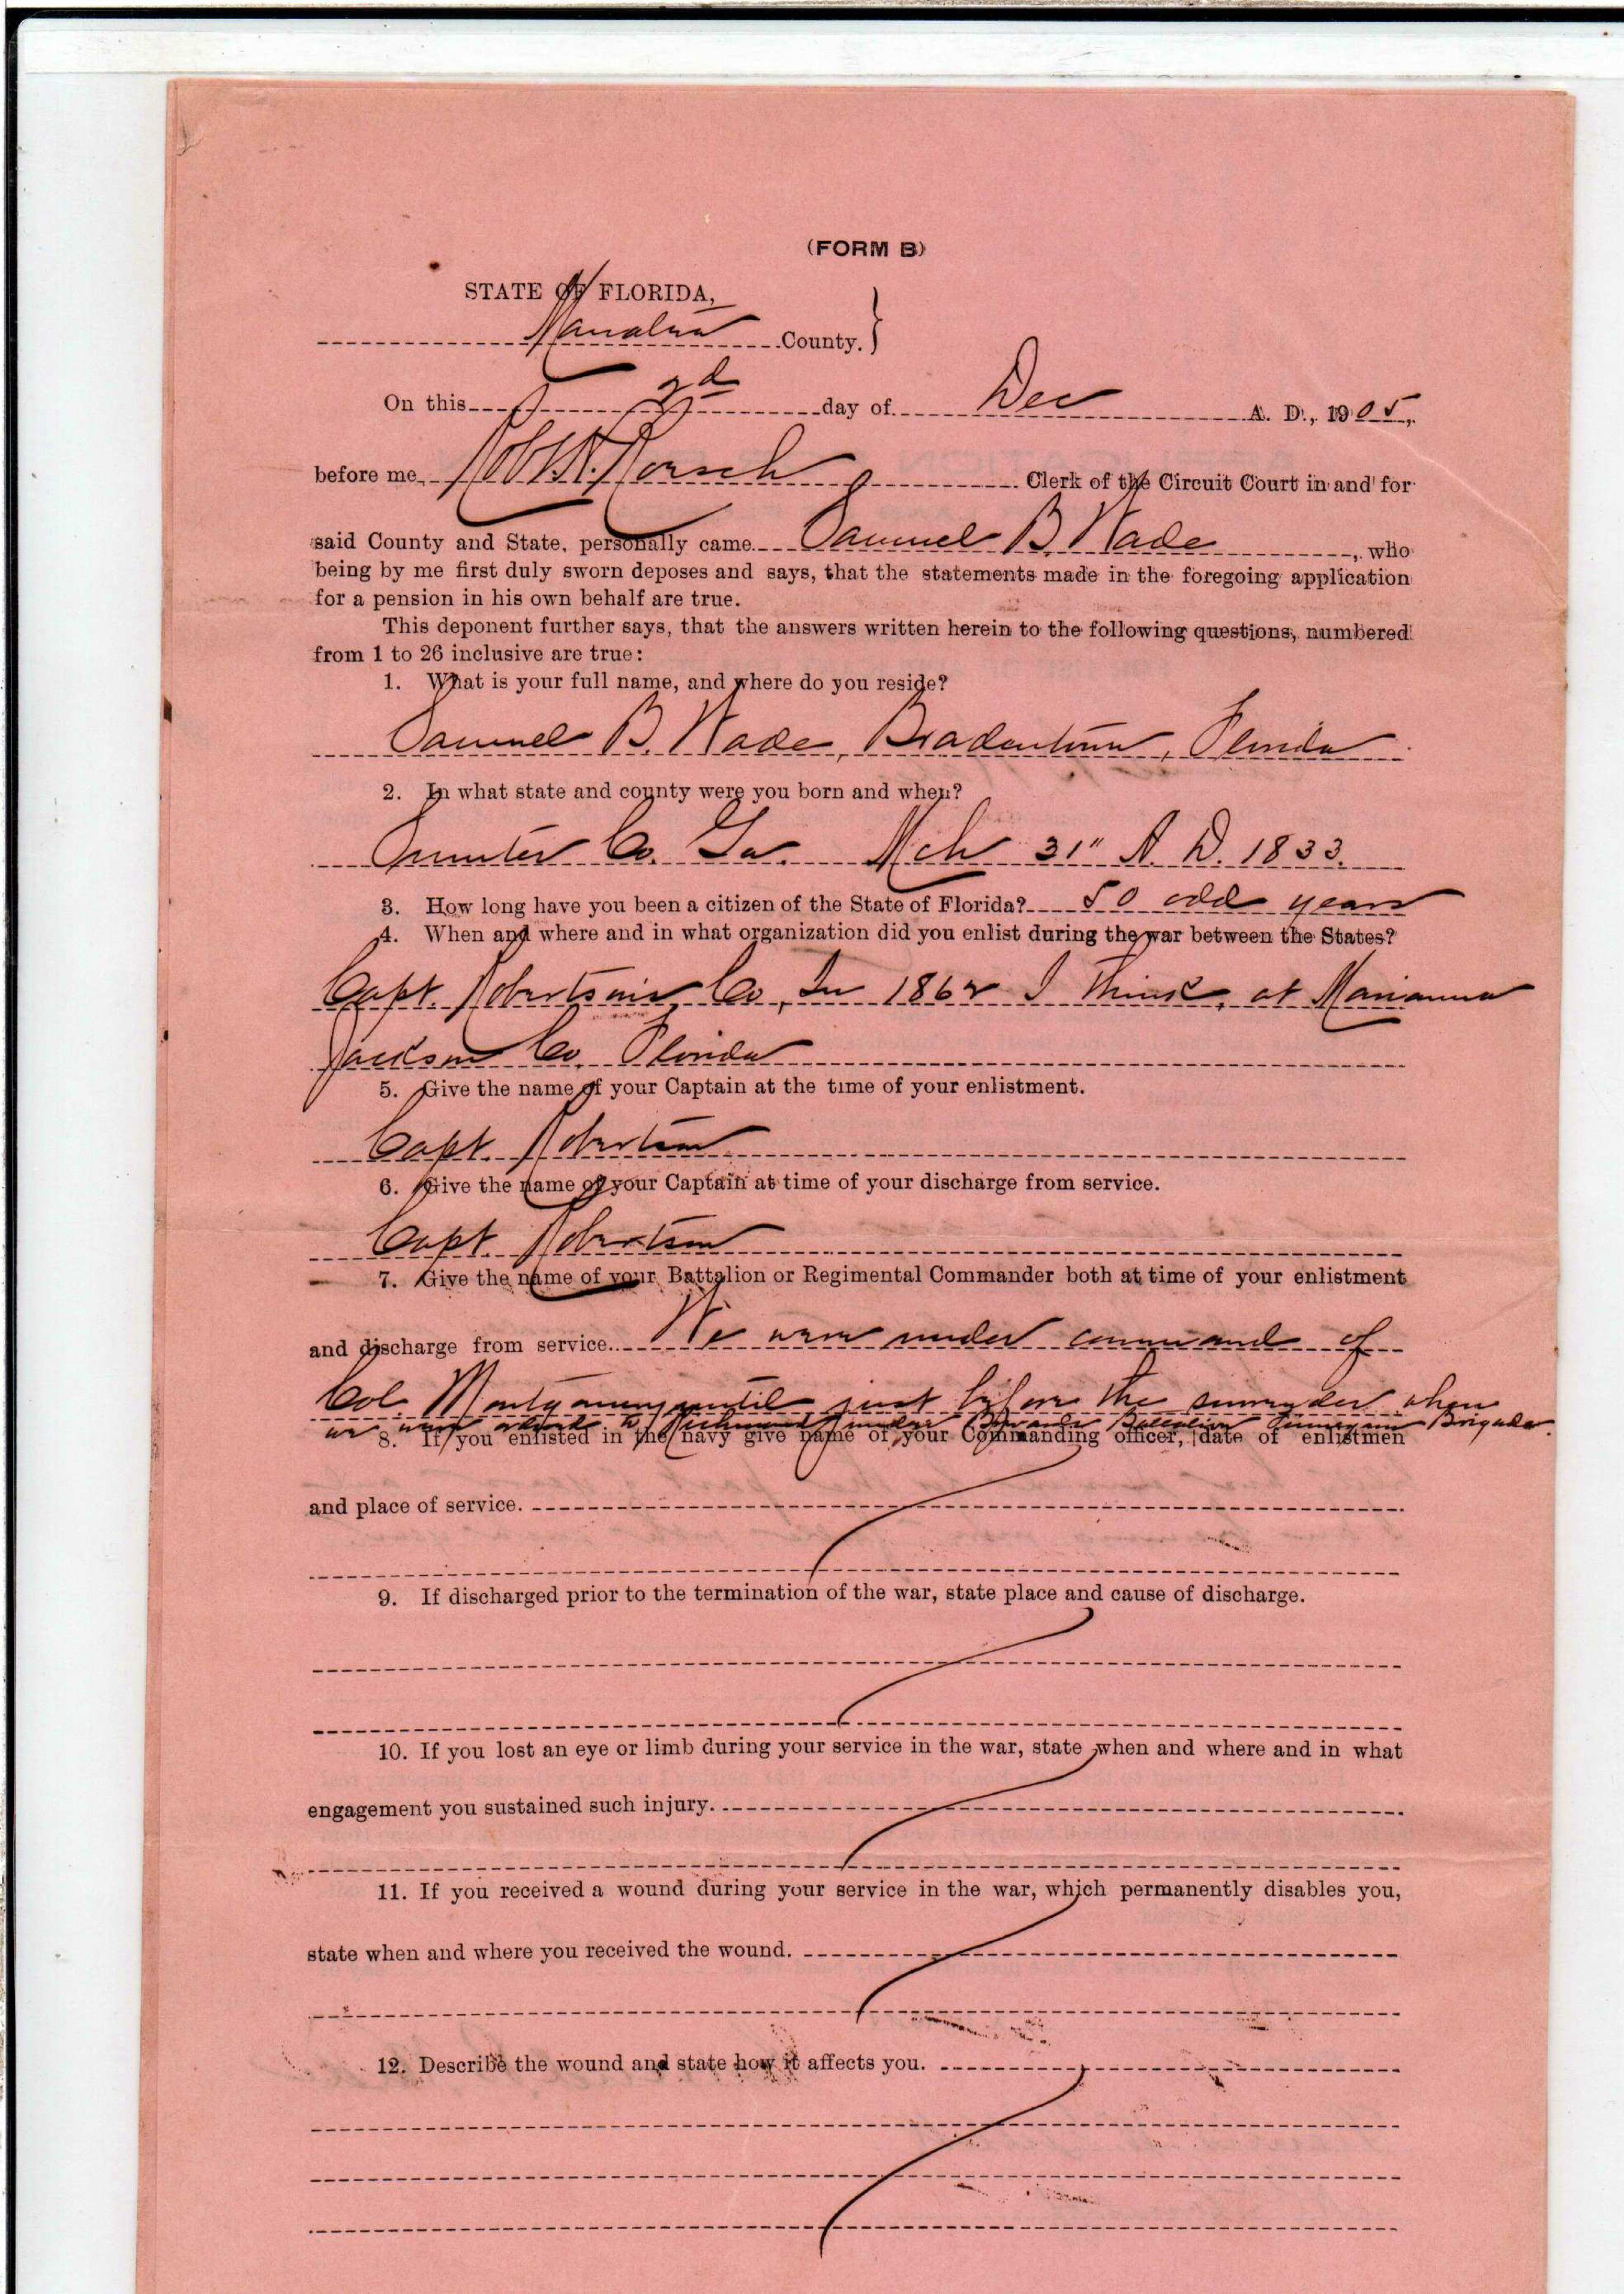 (FORM B)
STATE OF FLORIDA,
Manatee County. }
On this 2d day of Dec A. D., 1905,
before me, Robt. H. Roesch Clerk of the Circuit Court in and for
said County and State, personally came Samuel B. Wade, who
being by me first duly sworn deposes and says, that the statements made in the foregoing application
for a pension in his own behalf are true.
This deponent further says, that the answers written herein to the following questions, numbered
from 1 to 26 inclusive are true:
1. What is your full name, and where do you reside?
Samuel B. Wade, Bradentown, Florida
2. In what state and county were you born and when?
Sumter Co. Ga. Mch 31" A. D. 1833.
3. How long have you been a citizen of the State of Florida? 50 odd years
4. When and where and in what organization did you enlist during the war between the States?
Capt. Robertson's Co, In 1862 I think, at Marianna
Jackson Co, Florida
5. Give the name of your Captain at the time of your enlistment.
Capt. Robertson
6. Give the name of your Captain at time of your discharge from service.
Capt. Robertson
7. Give the name of your Battalion or Regimental Commander both at time of your enlistment
and discharge from service. We were under command of
Col. Montgomery until just before the surrender when
we were ordered to Richmond under Battalion Finnegans Brigade.
8. If you enlisted in the navy give name of your Commanding officer, date of enlistmen
and place of service.
9. If discharged prior to the termination of the war, state place and cause of discharge.
10. If you lost an eye or limb during your service in the war, state when and where and in what
engagement you sustained such injury.
11. If you received a wound during your service in the war, which permanently disables you,
state when and where you received the wound.
12. Describe the wound and state how it affects you.